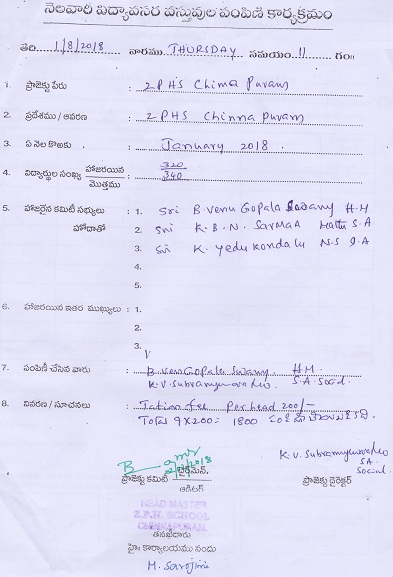 నెలవారీ విద్యావసర వస్తువుల పంపిణీ కార్యక్రమం
తేది 1/8/2018 వారము THURSDAY సమయం 11 గం॥
1. ప్రాజెక్టు పేరు : ZPHS Chinna Puram
2. ప్రదేశము / ఆవరణ : ZPHS Chinna Puram
3. ఏ నెల కొఱకు : January 2018.
4. విద్యార్థుల సంఖ్య హాజరయిన / మొత్తము : 320 / 340
5. హాజరైన కమిటీ సభ్యులు : 1. Sri B. Venu Gopala Swamy H.M
హోదాతో 2. Sri K.B.N. Sarmaa Maths S.A
3. Sri K. Yedukondalu N.S S.A
4.
5.
6. హాజరయిన ఇతర ముఖ్యులు : 1.
2.
3.
7. పంపిణీ చేసిన వారు : B. Venu Gopala Swamy. H.M.
K.V. Subramanyeswara Rao S.A. Social.
8. వివరణ / సూచనలు : Tution fee Per head 200/-
Total 9x200 = 1800
2018
ప్రాజెక్టు కమిటీ ఛైర్మెన్.
ఆడిటర్
K.V. Subramanyeswara Rao
SA
Social.
ప్రాజెక్టు డైరెక్టర్
HEAD MASTER
Z.P.H. SCHOOL
CHINNAPURAM.
తనఖీదారు
హై: కార్యాలయము నందు
M. Sarojini